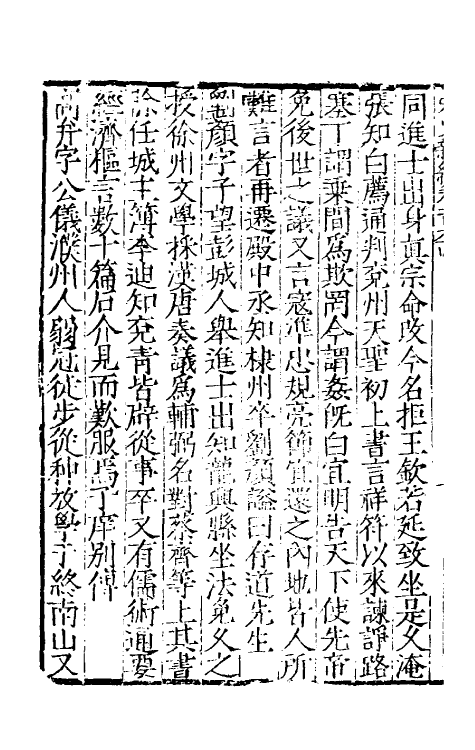 同進士出身真宗命改今名拒王欽若延致坐是久淹
張知白薦通判兖州天聖初上書言祥符以來諫諍路
塞丁謂乗間爲欺罔今謂姦旣白宜明告天下使先帝
免後世之議又言寇準忠規亮節宜還之內地皆人所
難言者再遷殿中丞知棣州卒劉顔謚曰存道先生
劉顔字子望彭城人舉進士出知龍興縣坐法免久之
授徐州文學採漢唐奏議爲輔弼名對蔡齊等上其書
除任城主簿李迪知兖青皆辟從事卒又有儒術通要
經濟樞言數十篇石介見而歎服焉丁庠別傳
高弁字公儀濮州人弱冠徒步從种放學于終南山又